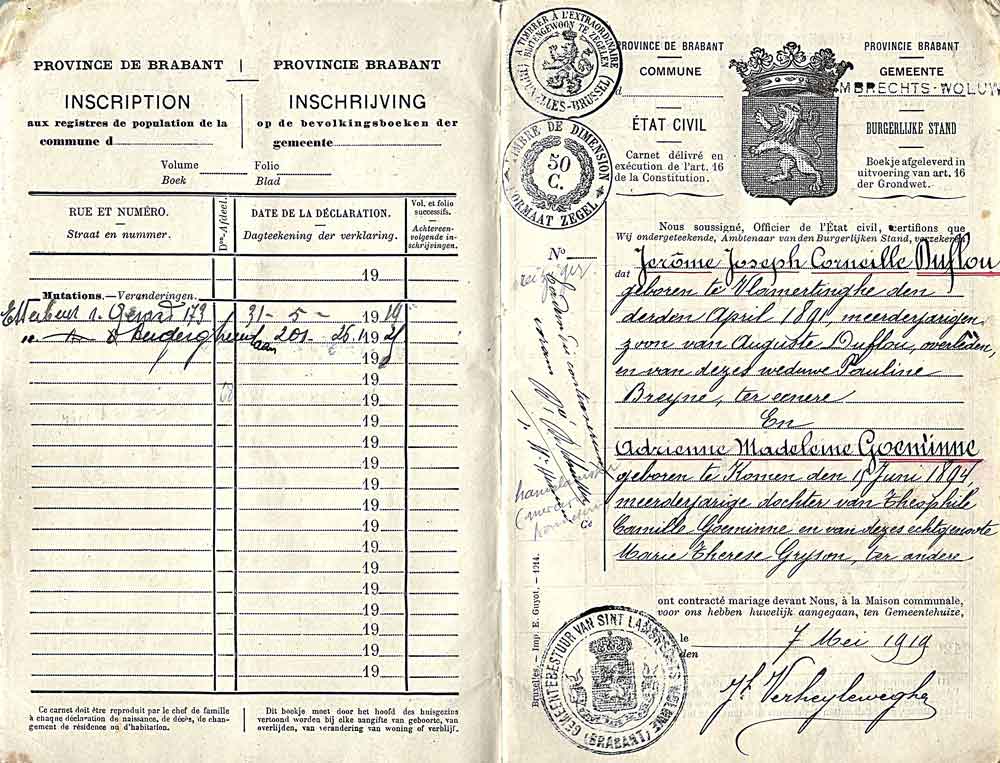 PROVINCE DE BRABANT | PROVINCIE BRABANT
INSCRIPTION
aux registres de population de la
commune d
INSCHRIJVING
op de bevolkingsboeken der
gemeente
Volume Folio
Boek Blad
RUE ET NUMÉRO.
Straat en nummer.
Don-Afdeel.
DATE DE LA DÉCLARATION.
Dagteekening der verklaring.
Vol. et folio
successifs.
Achtereen-
volgende in-
schrijvingen.
19
Mutations.—Veranderingen.
Etterbeek r. Gérard 173 31- 5- 1919
201
19
19
19
19
19
19
19
19
19
19
19
19
19
19
19
Ce carnet doit être reproduit par le chef de famille
à chaque déclaration de naissance, de décès, de chan-
gement de résidence ou d'habitation.
Dit boekje moet door het hoofd des huisgezins
vertoond worden bij elke aangifte van geboorte, van
overlijden, van verandering van woning of verblijf.
A TIMBRER À L'EXTRAORDINAIRE
BUITENGEWOON TE ZEGELEN
BRUXELLES-BRUSSEL
TIMBRE DE DIMENSION
50
C.
FORMAAT ZEGEL
PROVINCE DE BRABANT
COMMUNE
d
ÉTAT CIVIL
Carnet délivré en
exécution de l'art. 16
de la Constitution.
PROVINCIE BRABANT
GEMEENTE
MBRECHTS-WOLUW
BURGERLIJKE STAND
Boekje afgeleverd in
uitvoering van art. 16
der Grondwet.
Nous soussigné, Officier de l'État civil, certifions que
Wij ondergeteekende, Ambtenaar van den Burgerlijken Stand, verzekeren
No
dat Jerôme Joseph Corneille Duflou
geboren te Vlamertinghe den
derden April 1891, meerderjarigen
zoon van Auguste Duflou, overleden,
en van dezes weduwe Pauline
Breyne, ter eenere
En
Adrienne Madeleine Goeminne
geboren te Komen den 15 Juni 1894,
meerderjarige dochter van Théophile
Camille Goeminne en van dezes echtgenoote
Marie Therese Gryson, ter andere
ont contracté mariage devant Nous, à la Maison communale,
voor ons hebben huwelijk aangegaan, ten Gemeentehuize,
le
den 7 Mei 1919
Verheyleweghe
GEMEENTEBESTUUR VAN SINT LAMBRECHTS WOLUWE
(BRABANT)
Bruxelles. — Imp. E. Guyot. — 1244.